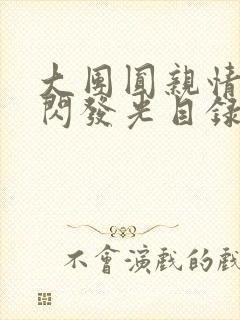 大團圓親情
閃發光自錄
不會演戲的戲